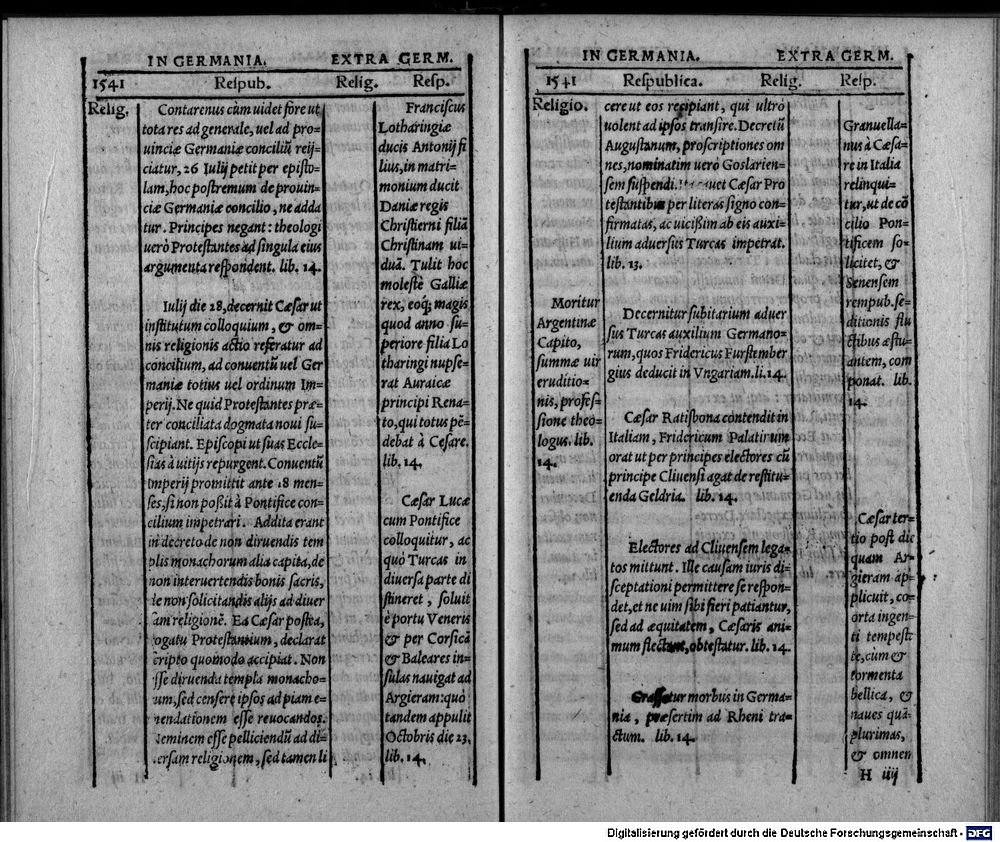 IN GERMANIA. EXTRA GERM.
1541 Respub. Relig. Resp.
Relig.
Contarenus cùm uidet fore ut
tota res ad generale, uel ad pro-
uinciæ Germaniæ conciliũ reij-
ciatur, 26 Iulij petit per episto-
lam, hoc postremum de prouin-
ciæ Germaniæ concilio, ne adda
tur. Principes negant: theologi
uerò Protestantes ad singula eius
argumenta respondent. lib. 14.
Iulij die 28, decernit Cæsar ut
institutum colloquium, & om-
nis religionis actio referatur ad
concilium, ad conuentũ uel Ger
maniæ totius uel ordinum Im-
perij. Ne quid Protestantes præ-
ter conciliata dogmata noui su-
scipiant. Episcopi ut suas Eccle-
sias à uitijs repurgent. Conuentũ
Imperij promittit ante 18 men-
ses, si non poßit à Pontifice con-
cilium impetrari. Addita erant
in decreto de non diruendis tem
plis monachorum alia capita, de
non interuertendis bonis sacris,
de non solicitandis alijs ad diuer
sam religionẽ. Ea Cæsar postea,
rogatu Protestantium, declarat
scripto quomodo accipiat. Non
esse diruenda templa monacho-
rum, sed censere ipsos ad piam e-
mendationem esse reuocandos.
Neminem esse pelliciendũ ad di-
uersam religionem, sed tamen li
Franciscus
Lotharingiæ
ducis Antonij fi
lius, in matri-
monium ducit
Daniæ regis
Christierni filiã
Christinam ui-
duã. Tulit hoc
molestè Galliæ
rex, eoq; magis
quod anno su-
periore filia Lo
tharingi nupse-
rat Auraicæ
principi Rena-
to, qui totus pẽ-
debat à Cesare.
lib. 14.
Cæsar Lucæ
cum Pontifice
colloquitur, ac
quò Turcas in
diuersa parte di
stineret, soluit
è portu Veneris
& per Corsicã
& Baleares in-
sulas nauigat ad
Argieram: quò
tandem appulit
Octobris die 23.
lib. 14.
IN GERMANIA. EXTRA GERM.
1541 Respublica. Relig. Resp.
Religio.
Moritur
Argentinæ
Capito,
summæ uir
eruditio-
nis, profes-
sione theo-
logus. lib.
14.
cere ut eos recipiant, qui ultrò
uolent ad ipsos transire. Decretũ
Augustanum, proscriptiones om
nes, nominatim uerò Goslarien-
sem suspendi. Cæsar Pro
testantibus per literas signo con-
firmatas, ac uicißim ab eis auxi-
lium aduersus Turcas impetrat.
lib. 13.
Decernitur subitarium aduer
sus Turcas auxilium Germano-
rum, quos Fridericus Furstember
gius deducit in Vngariam. li. 14.
Cæsar Ratisbona contendit in
Italiam, Fridericum Palatinum
orat ut per principes electores cũ
principe Cliuensi agat de restitu-
enda Geldria. lib. 14.
Electores ad Cliuensem lega-
tos mittunt. Ille causam iuris di-
sceptationi permittere se respon-
det, et ne uim sibi fieri patiantur,
sed ad æquitatem, Cæsaris ani-
mum flectant, obtestatur. lib. 14.
Grassatur morbus in Germa-
nia, præsertim ad Rheni tra-
ctum. lib. 14.
Granuella-
nus à Cæsa-
re in Italia
relinqui-
tur, ut de cõ
cilio Pon-
tificem so-
licitet, &
Senensem
rempub. se-
ditionis flu
ctibus æstu-
antem, com
ponat. lib.
14.
Cæsar ter-
tio post die
quam Ar-
gieram ap-
plicuit, co-
orta ingen-
ti tempesta
te, cùm &
tormenta
bellica, &
naues quã-
plurimas,
& omnem
H iiij
Digitalisierung gefördert durch die Deutsche Forschungsgemeinschaft - DFG